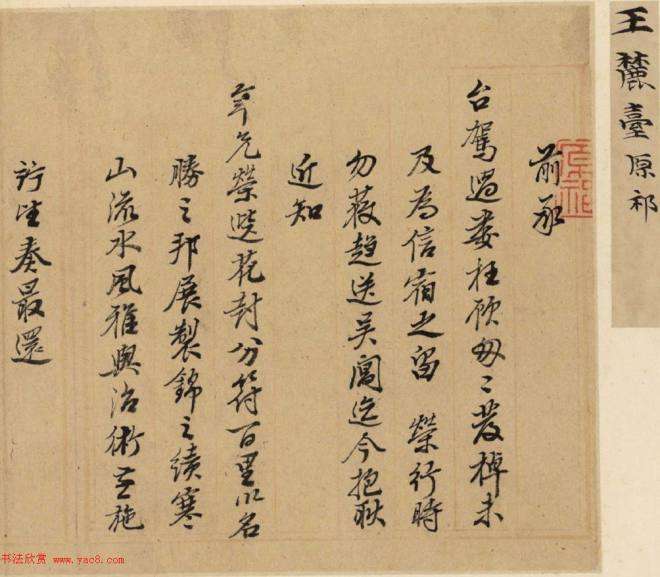 王麓臺原祁
前承
台駕過婁枉顧匆〻發棹未
及為信宿之留 榮行時
勿獲趨送吴閶迄今抱耿
近知
年兄榮選花封分符百里以名
勝之邦展製錦之績寒
山流水風雅與治術並施
竚望奏最還
书法欣赏 www.yac8.com